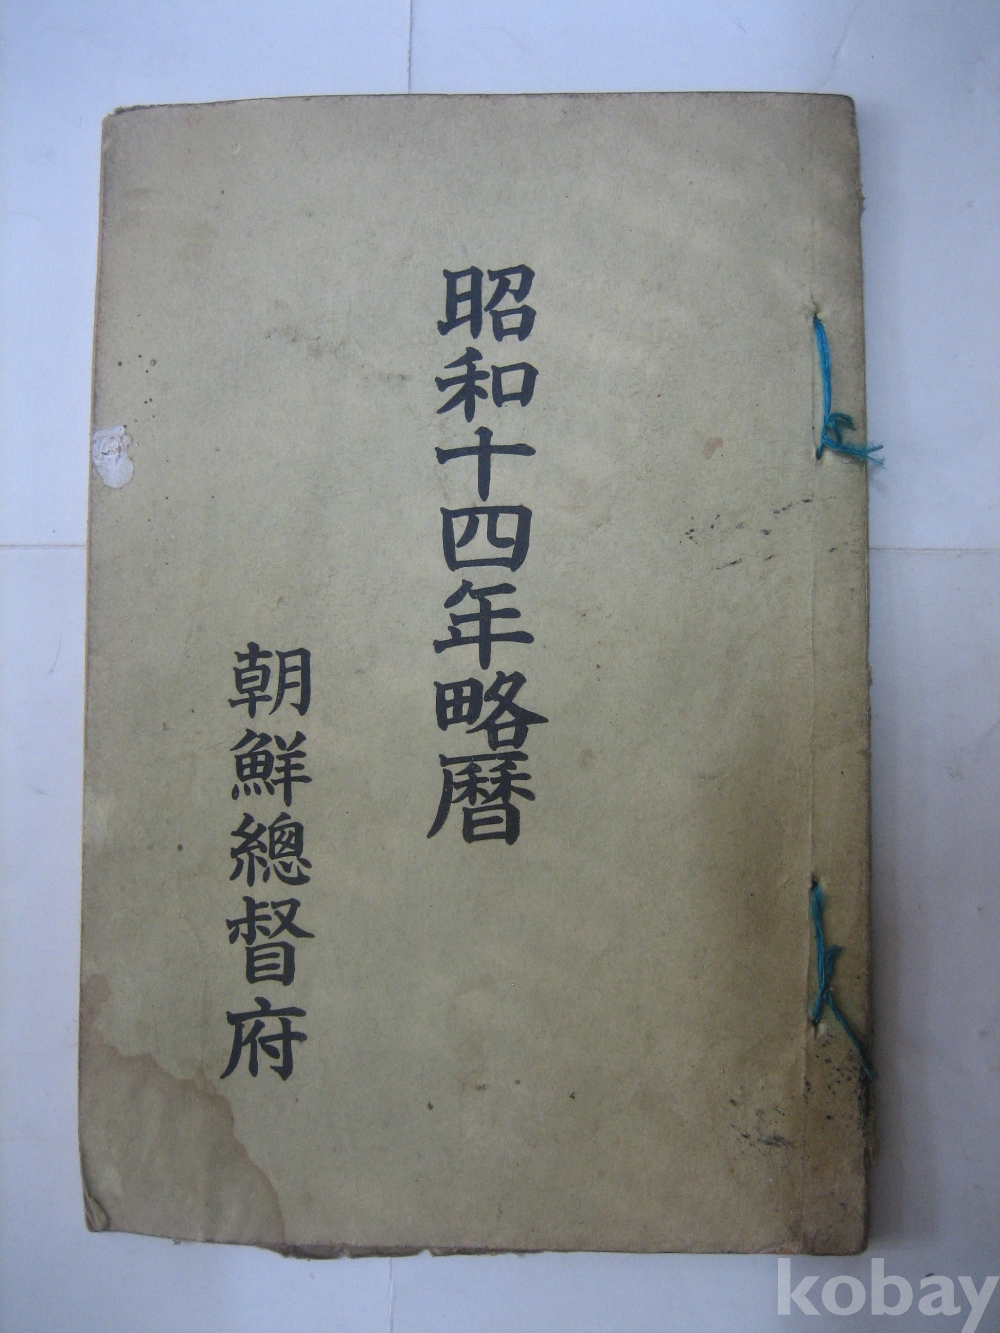 昭和十四年略暦
朝鮮總督府
kobay